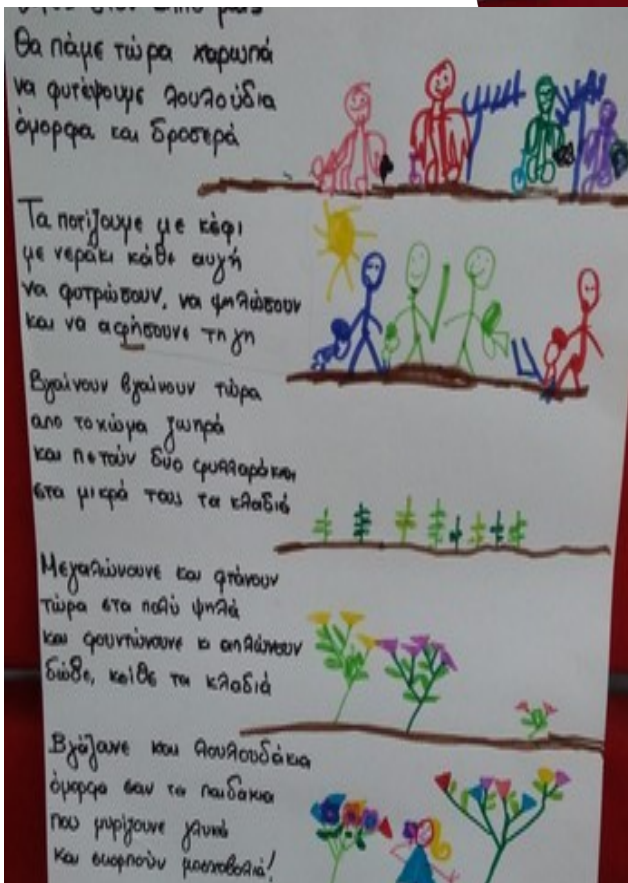 στον κήπο μας
Θα πάμε τώρα χαρωπά
να φυτέψουμε λουλούδια
όμορφα και δροσερά
Τα ποτίζουμε με κέφι
με νεράκι κάθε αυγή
να φυτρώσουν, να ψηλώσουν
και να αφήσουνε τη γη
Βγαίνουν βγαίνουν τώρα
απο το χώμα ζωηρά
και πετούν δύο φυλλαράκια
στα μικρά τους τα κλαδιά
Μεγαλώνουνε και φτάνουν
τώρα στα πολύ ψηλά
και φουντώνουνε κι απλώνουν
δώθε, κείθε τα κλαδιά
Βγάζουνε και λουλουδάκια
όμορφα σαν τα παιδάκια
που μυρίζουνε γλυκά
και σκορπούν μοσχοβολιά!